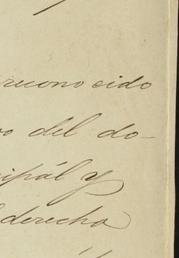 ruono cido
o del do-
cipál y
derecho